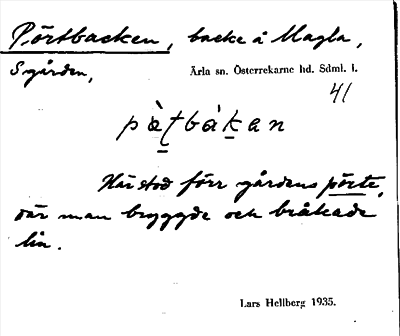 Pörtbacken, backe å Magla,
Sgården,
Ärla sn. Österrekarne hd. Sdml. l.
41
pà̱ṯbák̠an
Här stod förr gårdens pörte,
där man bryggde och bråkade
lin.
Lars Hellberg 1935.